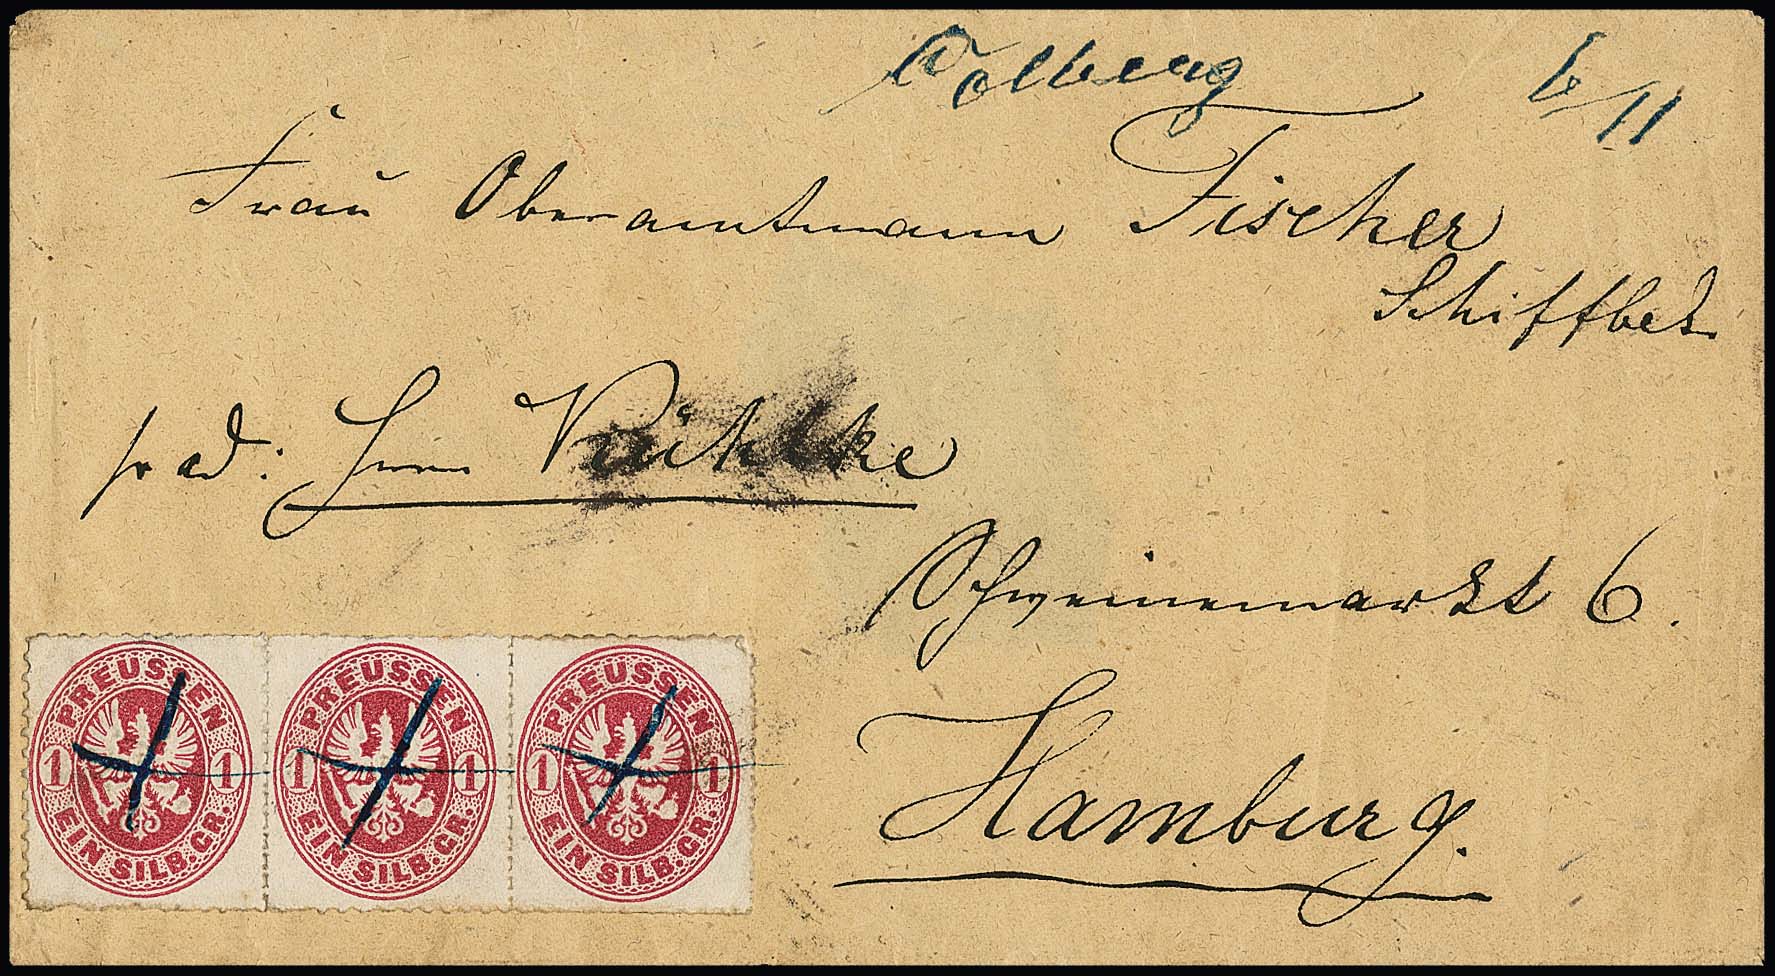 Colberg 6/11
Frau Oberamtmann Fischer
Schiffbek
pr ad: Herrn
Schweinemarkt 6.
Hamburg.
PREUSSEN PREUSSEN PREUSSEN
1 1 1 1 1 1
EIN SILB.GR. EIN SILB.GR. EIN SILB.GR.